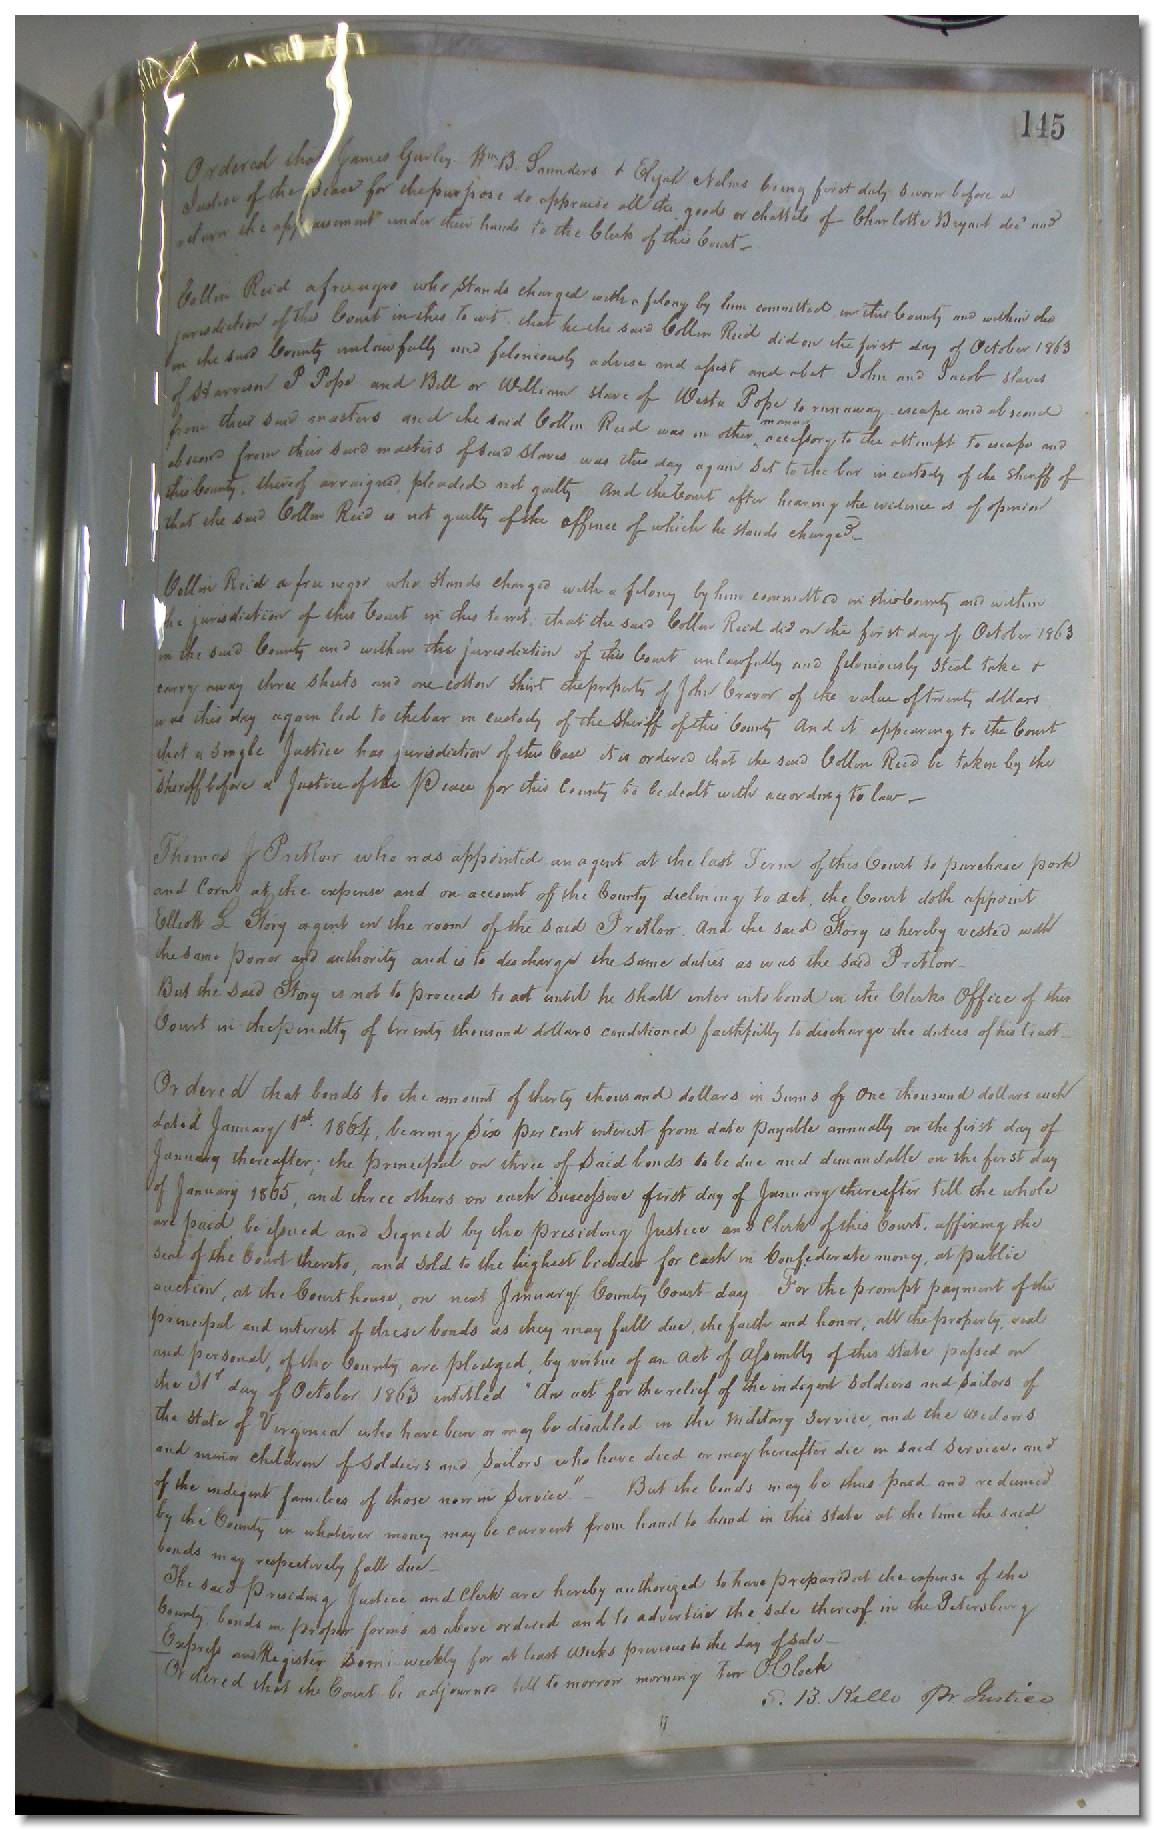 145
Ordered that James Gurley Wm B. Saunders & Elijah Nelms being first duly sworn before a
Justice of the Peace for the purpose do appraise all the goods or chattels of Charlotte Bryant decd and
return the appraisement under their hands to the Clerk of this Court—
Collin Reid a free negro who stands charged with a felony by him committed in this County and within the
jurisdiction of this Court in this to wit, that he the said Collin Reid did on the first day of October 1863
in the said County unlawfully and feloniously advise and assist and abet John and Jacob slaves
of Harrison P Pope and Bill or William slave of Pope to runaway escape and abscond
from their said masters and the said Collin Reid was in other manner accessory to the attempt to escape and
abscond from their said masters of said slaves was this day again set to the bar in custody of the Sheriff of
this County, thereof arraigned, pleaded not guilty And the Court after hearing the evidence is of opinion
that the said Collin Reid is not guilty of the offence of which he stands charged—
Collin Reid a free negro who stands charged with a felony by him committed in this County and within
the jurisdiction of this Court in this to wit, that the said Collin Reid did on the first day of October 1863
in the said County and within the jurisdiction of this Court unlawfully and feloniously steal take &
carry away three sheets and one cotton shirt the property of John of the value of twenty dollars
was this day again led to the bar in custody of the Sheriff of this County And it appearing to the Court
that a single Justice has jurisdiction of this Case it is ordered that the said Collin Reid be taken by the
Sheriff before a Justice of the Peace for this County to be dealt with according to law—
Thomas J Pretlow who was appointed an agent at the last Term of this Court to purchase pork
and Corn at the expense and on account of the County declining to act, the Court doth appoint
Elliott L Story agent in the room of the said Pretlow. And the said Story is hereby vested with
the same power and authority and is to discharge the same duties as was the said Pretlow—
But the said Story is not to proceed to act until he shall enter into bond in the Clerks Office of this
Court in the penalty of twenty thousand dollars conditioned faithfully to discharge the duties of his trust—
Ordered that bonds to the amount of thirty thousand dollars in sums of one thousand dollars each
dated January 1st. 1864, bearing six per cent interest from date payable annually on the first day of
January thereafter; the principal on three of said bonds to be due and demandable on the first day
of January 1865, and three others on each successive first day of January thereafter till the whole
are paid be issued and signed by the presiding Justice and Clerk of this Court, affixing the
seal of the Court thereto, and sold to the highest bidder for cash in Confederate money, at public
auction, at the Court house, on next January County Court day For the prompt payment of the
principal and interest of these bonds as they may fall due, the faith and honor, all the property, real
and personal, of the County are pledged, by virtue of an act of Assembly of this state passed on
the 31st day of October 1863 entitled "An act for the relief of the indigent soldiers and sailors of
the state of Virginia who have been or may be disabled in the military service, and the widows
and minor children of soldiers and sailors who have died or may hereafter die in said service, and
of the indigent families of those now in service"— But the bonds may be thus paid and redeemed
by the County in whatever money may be current from hand to hand in this state at the time the said
bonds may respectively fall due—
The said Presiding Justice and Clerk are hereby authorized to have prepared at the expense of the
County bonds in proper forms as above ordered and to advertise the sale thereof in the Petersburg
Express and Register semi weekly for at least weeks previous to the day of sale—
Ordered that the Court be adjourned till to morrow morning Ten OClock
S. B. Kello Pr. Justice